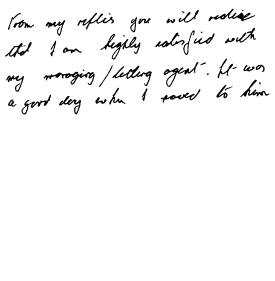 From my replies you will realise
that I am highly satisfied with
my managing/letting agent. It was
a good day when I moved to him